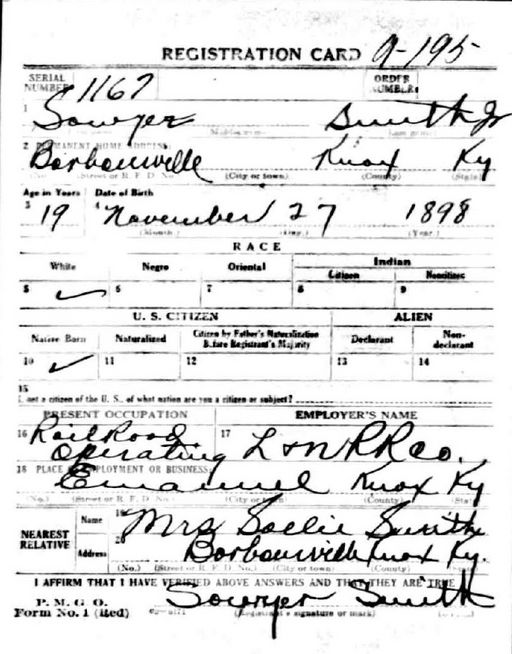 REGISTRATION CARD 9-195
SERIAL NUMBER 1167 ORDER NUMBER
1 Sawyer Smith Jr
2 PERMANENT HOME ADDRESS:
Barbourville Knox Ky
(No.) (Street or R. F. D. No.) (City or town) (County) (State)
Age in Years Date of Birth
3 19 4 November 27 1898
(Month.) (Day.) (Year.)
RACE
White Negro Oriental Indian
Citizen Noncitizen
5 ✓ 6 7 8 9
U. S. CITIZEN ALIEN
Native Born Naturalized Citizen by Father's Naturalization Before Registrant's Majority Declarant Non-declarant
10 ✓ 11 12 13 14
15
If not a citizen of the U. S., of what nation are you a citizen or subject?
PRESENT OCCUPATION EMPLOYER'S NAME
16 RailRoad 17
Operating L & N RR Co.
18 PLACE OF EMPLOYMENT OR BUSINESS:
Emanuel Knox Ky
(No.) (Street or R. F. D. No.) (City or town) (County) (State)
NEAREST RELATIVE Name 19 Mrs Sallie Smith
Address 20 Barbourville Knox Ky.
(No.) (Street or R. F. D. No.) (City or town) (County) (State)
I AFFIRM THAT I HAVE VERIFIED ABOVE ANSWERS AND THAT THEY ARE TRUE
P. M. G. O.
Form No. 1 (Red) Sawyer Smith
(Registrant's signature or mark)